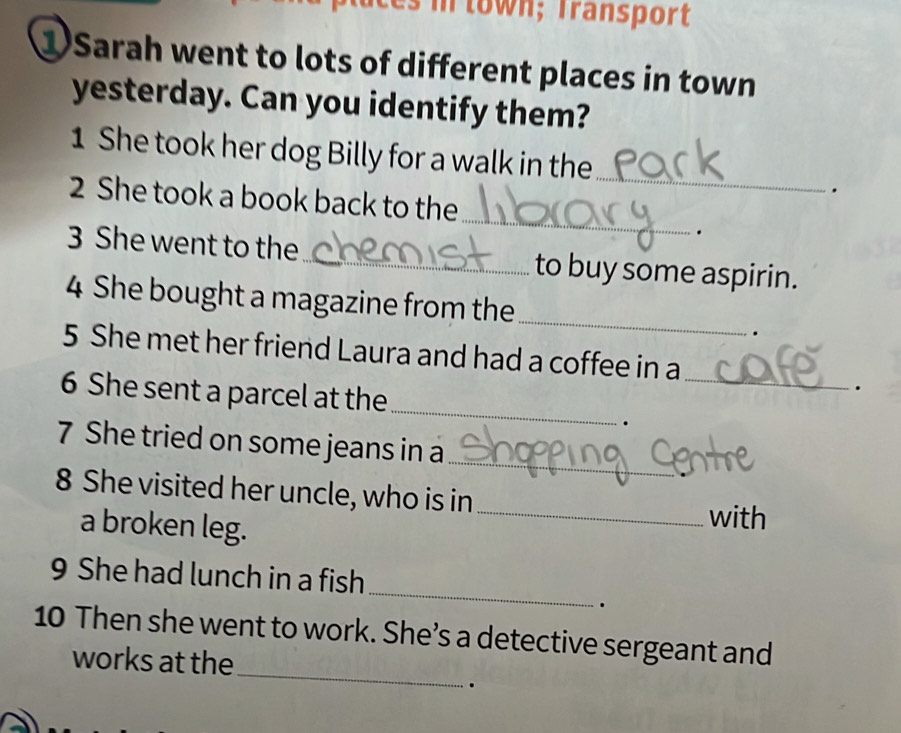 in town; Transport
1 Sarah went to lots of different places in town
yesterday. Can you identify them?
1 She took her dog Billy for a walk in the park.
2 She took a book back to the library.
3 She went to the chemist to buy some aspirin.
4 She bought a magazine from the .
5 She met her friend Laura and had a coffee in a café.
6 She sent a parcel at the .
7 She tried on some jeans in a Shopping Centre.
8 She visited her uncle, who is in with
a broken leg.
9 She had lunch in a fish .
10 Then she went to work. She's a detective sergeant and
works at the .